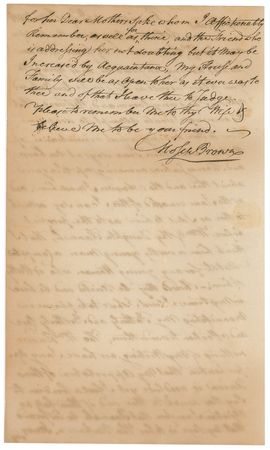 for her Dear Mothers sake whom I affectionately
Remember, as well for as, thine, and the Friend who
is addressing her not doubting but it may be
Increased by Acquaintance, My House and
Family will be as open to her as it ever was to
thee and of that I leave thee to Judge
Please to remember Me to thy Wife &
believe Me to be your friend.
Moses Brown